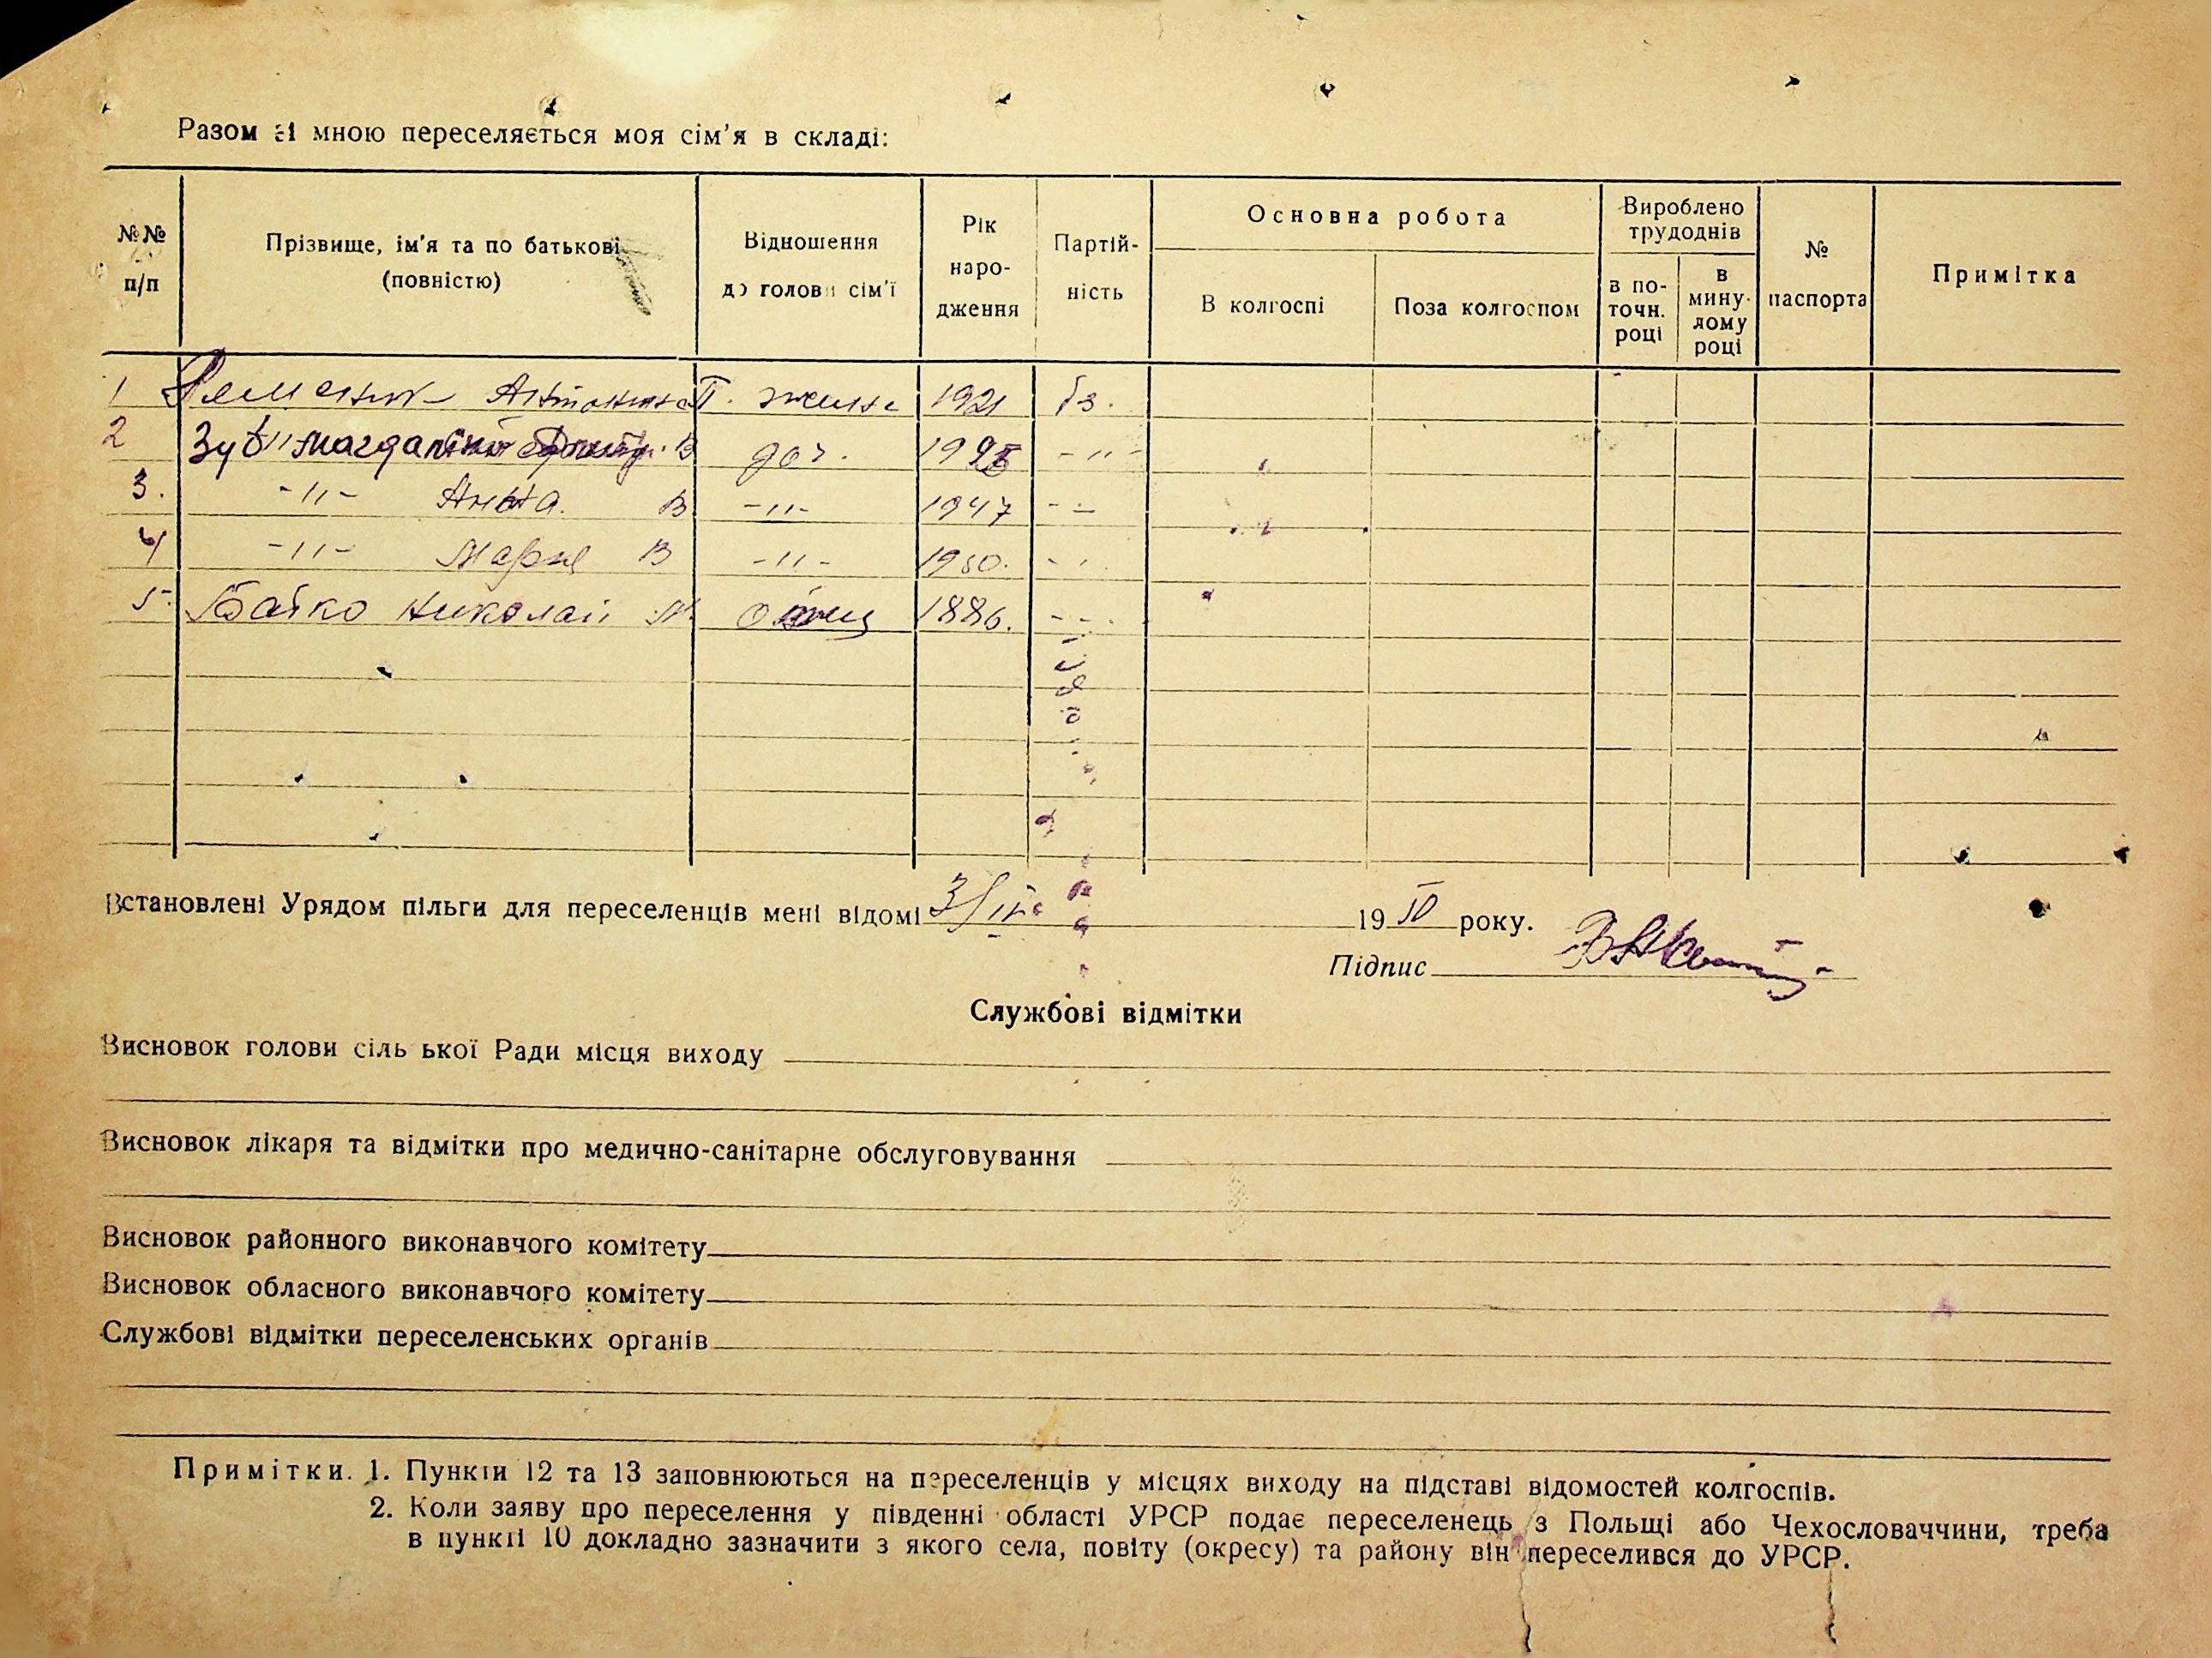 Разом зі мною переселяється моя сім'я в складі:
№№ п/п
Прізвище, ім'я та по батькові (повністю)
Відношення до голови сім'ї
Рік народження
Партійність
Основна робота
В колгоспі
Поза колгоспом
Вироблено трудоднів
в поточн. році
в минулому році
№ паспорта
Примітка
1 Антонина П. жена 1921 бз.
2 В доч. -"-
3. -"- Анна. В -"- 1947 - -
4 -"- Мария В -"- 1950. - -
5. Байко Николай М. отец 1886. - -
Встановлені Урядом пільги для переселенців мені відомі 19 50 року.
Підпис
Службові відмітки
Висновок голови сільської Ради місця виходу
Висновок лікаря та відмітки про медично-санітарне обслуговування
Висновок районного виконавчого комітету
Висновок обласного виконавчого комітету
Службові відмітки переселенських органів
Примітки. 1. Пункти 12 та 13 заповнюються на переселенців у місцях виходу на підставі відомостей колгоспів.
2. Коли заяву про переселення у південні області УРСР подає переселенець з Польщі або Чехословаччини, треба
в пункті 10 докладно зазначити з якого села, повіту (окресу) та району він переселився до УРСР.